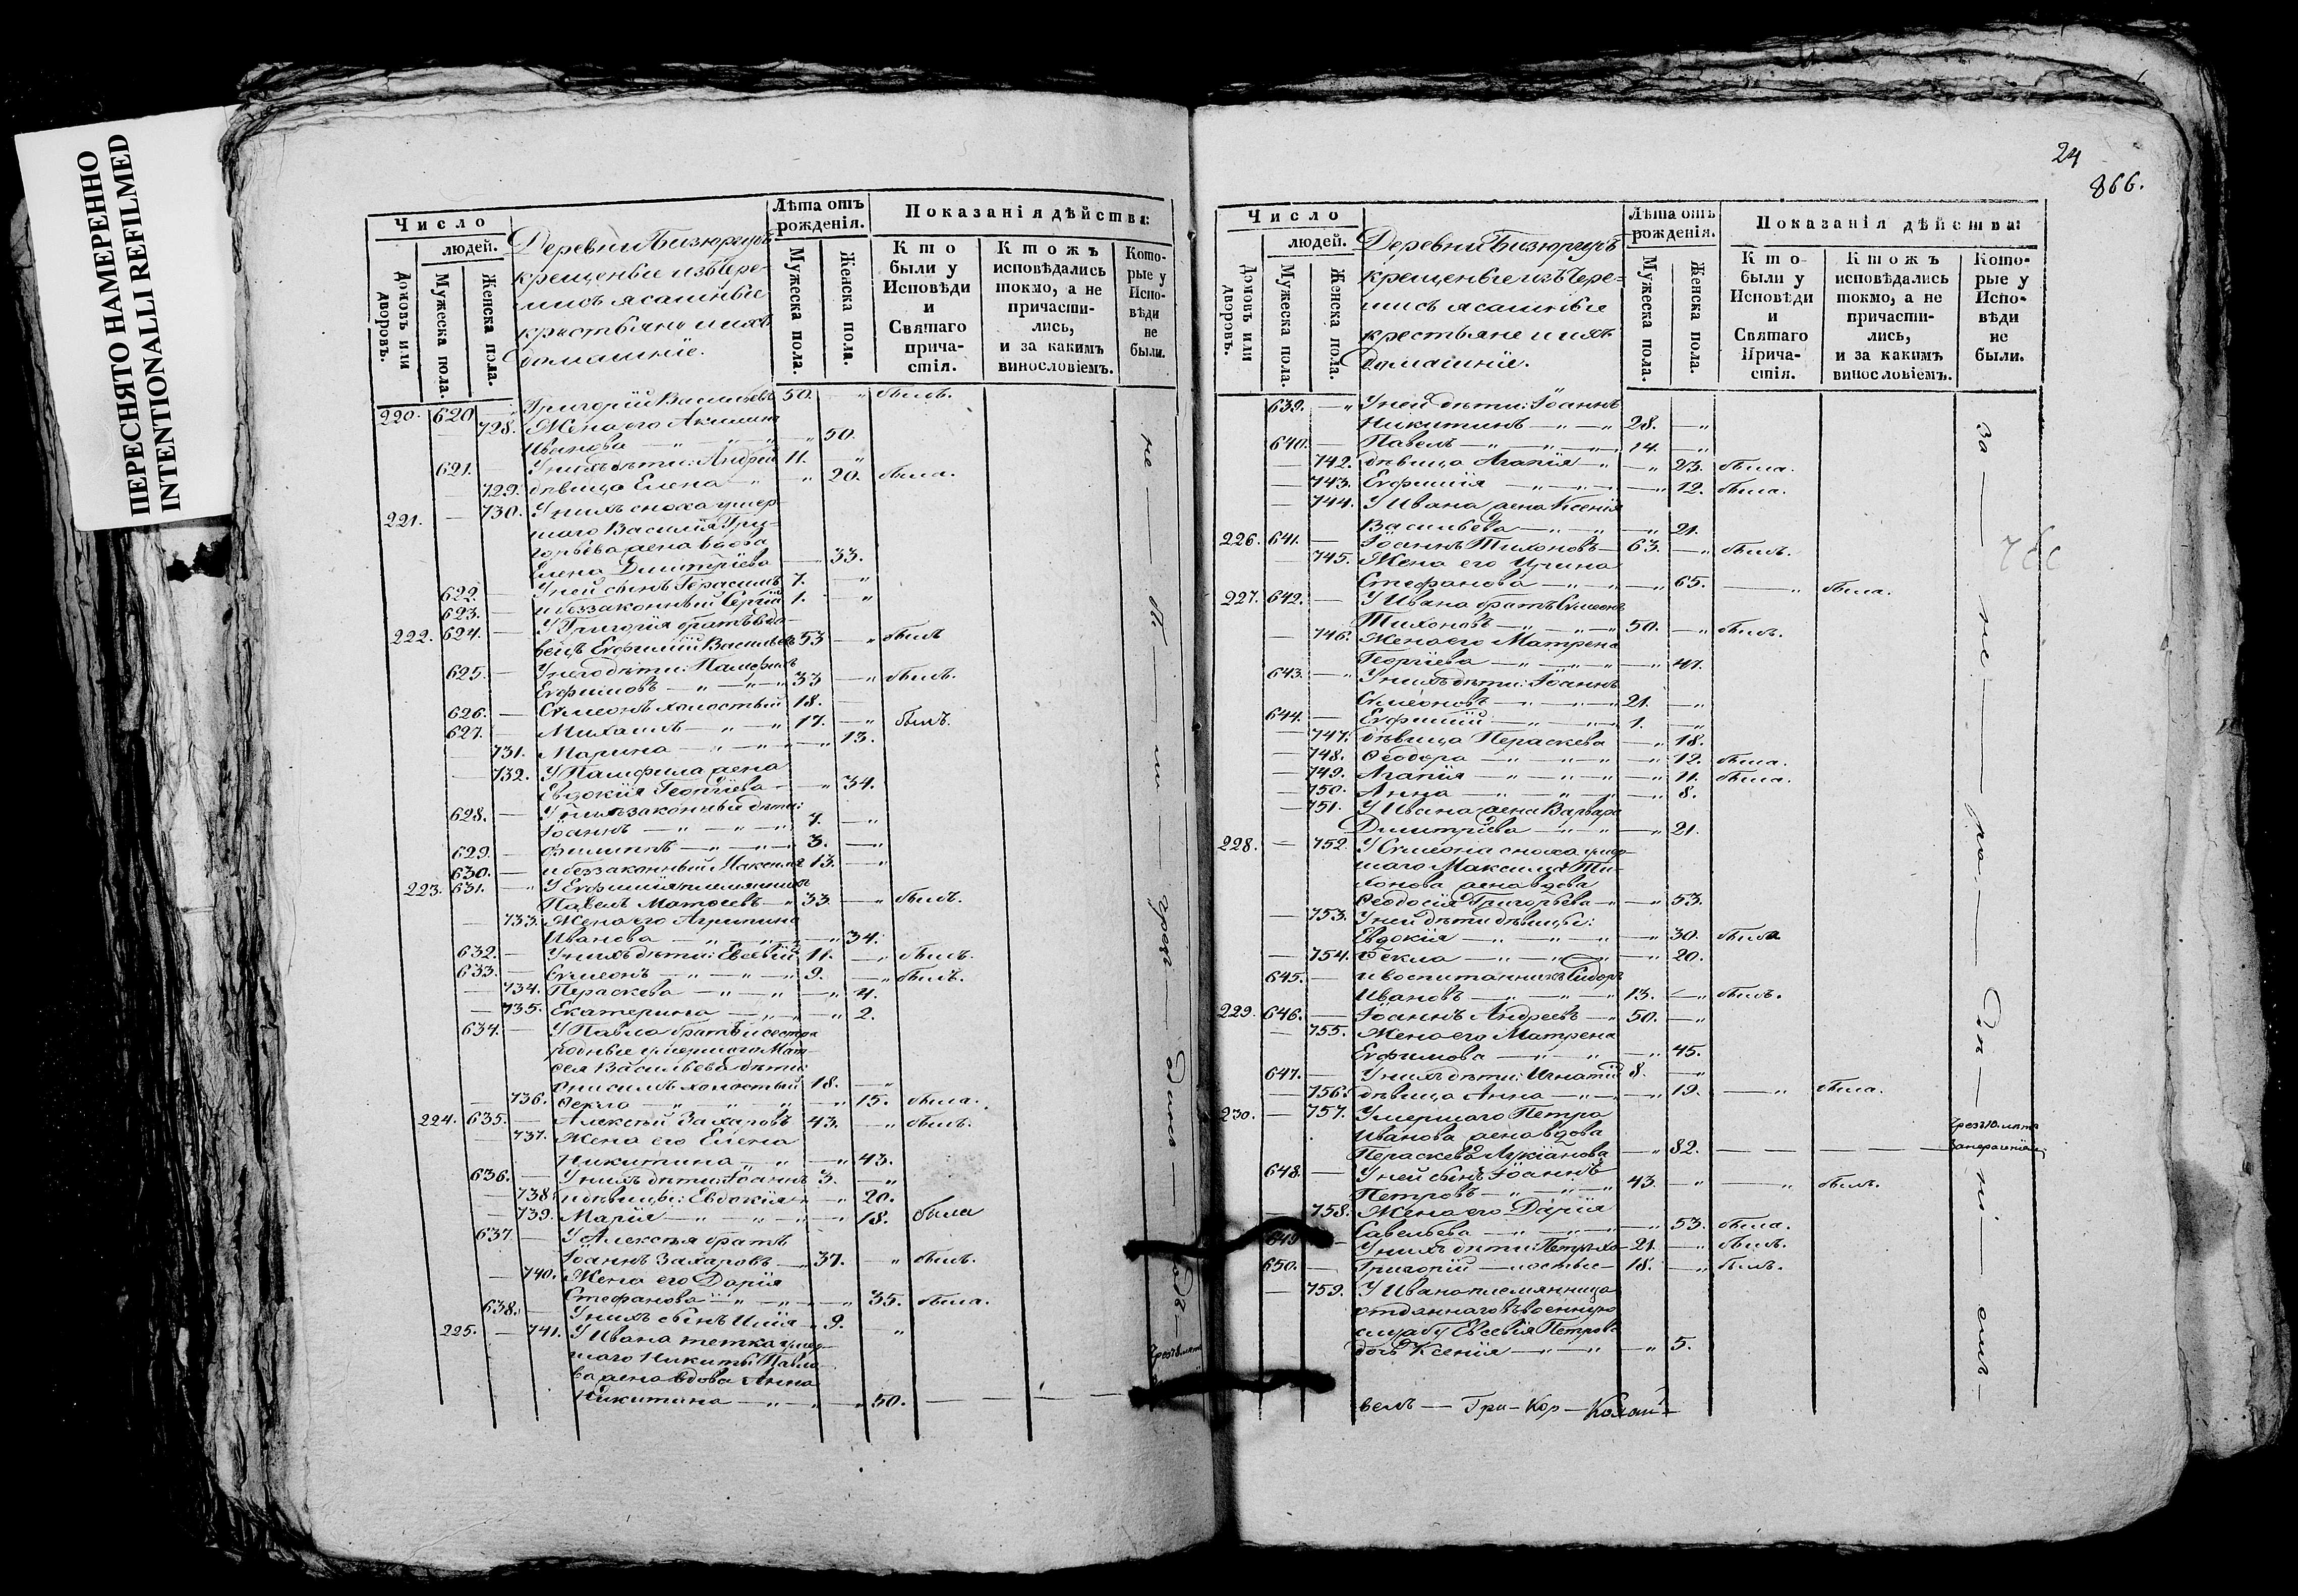 ПЕРЕСНЯТО НАМЕРЕННО
INTENTIONALLI REFILMED
Число
людей.
Домовъ или дворовъ.
Мужеска пола.
Женска пола.
Деревни Бизюргубъ
крещеные изъ Чере-
мисъ ясашные
крестьяне и ихъ
домашніе.
Лѣта отъ рожденія.
Мужеска пола.
Женска пола.
Показанія дѣйства:
Кто были у Исповѣди и Святаго причастія.
Ктожъ исповѣдались токмо, а не причастились, и за какимъ винословіемъ.
Которые у Исповѣди не были.
220. 620 — Григорій Васильевъ 50. „ былъ.
728. Жена его Акилина
Иванова — „ — „ 50.
621. — У нихъ дѣти: Андрей 11. „
729. дѣвица Елена — „ 20. была.
221. — 730. У нихъ сноха умер-
шаго Василія Гри-
горьева жена вдова
Елена Димитріева — 33.
622. — У ней сынъ Герасимъ 7. — „
623. — и беззаконный Сергій 1. — „
222. 624. — У Григорія братъ вдо-
вецъ Евфимій Васильевъ 53 — „ былъ
625. — У него дѣти: Памфилъ
Евфимовъ — „ — „ 33 — „ былъ.
626. — Сѵмеонъ холостый 18. —
627. — Михаилъ — „ — „ 17. — „ былъ.
731. Марина — „ — „ — „ 13.
— 732. У Памфила жена
Евдокія Георгіева — „ 34.
628. — У нихъ законныи дѣти:
Іоаннъ — „ — „ — „ 7. — „
629. — Филиппъ — „ — „ 3. — „
630. — и беззаконный Максимъ 13. — „
223. 631. — „ У Евфимія племянникъ
Павелъ Матѳеевъ — „ 33. — „ былъ.
— 733. Жена его Агрипина
Иванова — „ — „ — „ 34.
632. — У нихъ дѣти: Евсевій 11. — „ былъ.
633. — Сѵмеонъ — „ — „ 9. — „ былъ.
— 734. Параскева — „ — „ — „ 4.
— 735. Екатерина — „ — „ 2.
634. — У Павла братъ и сестра
родные умершаго Мат-
ѳея Васильева дѣти:
Онисимъ холостый 18. — „
— 736. Ѳекла — „ — „ 15. была.
224. 635. — Алексѣй Захаровъ 43. — „ былъ.
— 737. Жена его Елена
Никитина — „ — „ 43.
636. — У нихъ дѣти: Іоаннъ 3. — „
— 738. и дѣвицы: Евдокія — „ 20.
— 739. Марія — „ — „ — „ 18. была
637. — У Алексѣя братъ
Іоаннъ Захаровъ — „ 37. — „ былъ.
— 740. Жена его Дарія
Стефанова — „ — „ — „ 35. была.
638. — У нихъ сынъ Илія — „ 9. „
225. — 741. У Ивана тетка умер-
шаго Никиты Павло-
ва жена вдова Анна
Никитина — „ — „ — „ 50. — — —
24
866.
Число
людей.
Домовъ или дворовъ.
Мужеска пола.
Женска пола.
Деревни Бизюргубъ
крещеные изъ Чере-
мисъ ясашные
крестьяне и ихъ
домашніе.
Лѣта отъ рожденія.
Мужеска пола.
Женска пола.
Показанія дѣйства:
Кто были у Исповѣди и Святаго Причастія.
Ктожъ исповѣдались токмо, а не причастились, и за какимъ винословіемъ.
Которые у Исповѣди не были.
639. — „ У ней дѣти: Іоаннъ
Никитинъ — „ — „ 28. — „
640. — Павелъ — „ — „ — „ 14. — „
— 742. дѣвица Агапія — „ — „ 23. была.
— 743. Евфимія — „ — „ — „ 12. была.
— 744. У Ивана жена Ксенія
Васильева — „ — „ — „ 21.
226. 641. — Іоаннъ Тихоновъ — 63. — „ былъ.
— 745. Жена его Ирина
Стефанова — „ — „ — „ 65. — „ была.
227. 642. — У Ивана братъ Сѵмеонъ
Тихоновъ — „ — „ — „ 50. — „ былъ.
— 746. Жена его Матрена
Георгіева — „ — „ — „ 47.
643. — „ У нихъ дѣти: Іоаннъ
Сѵмеоновъ — „ — „ — „ 21. — „
644. — Евфимій — „ — „ 1. — „
— 747. дѣвица Пераскева — „ 18.
— 748. Ѳеодора — „ — „ — „ 12. была.
— 749. Агапія — „ — „ — „ 11. была.
— 750. Анна — „ — „ — „ 8.
— 751. У Ивана жена Варвара
Димитріева — „ — „ — „ 21.
228. — 752. У Сѵмеона сноха умер-
шаго Максима Ти-
хонова жена вдова
Ѳеодосія Григорьева — „ — „ 53.
— 753. У ней дѣти дѣвицы:
Евдокія — „ — „ — „ 30. была
— 754. Ѳекла — „ — „ — „ 20.
645. — и воспитанникъ Сидоръ
Ивановъ — „ — „ — „ 13. — „ былъ.
229. 646. — Іоаннъ Андреевъ — „ 50. — „
— 755. Жена его Матрена
Евфимова — „ — „ — „ 45.
647. — У нихъ дѣти: Игнатій 8. — „
— 756. дѣвица Анна — „ — „ 19. — „ была.
230. — 757. Умершаго Петра
Иванова жена вдова
Пераскева Лукіанова — „ 82. — — — — —
648. — У ней сынъ Іоаннъ
Петровъ — „ — „ — „ 43. — „ — „ былъ.
— 758. Жена его Дарія
Савельева — „ — „ — „ 53. была.
649 — У нихъ дѣти: Петръ хо- 21. — „ былъ.
650. — Григорій — лостые — 18. — „ былъ.
— 759. У Ивана племянница
отданнаго въ военную
службу Евсевія Петрова
дочь Ксенія — „ — „ — „ 5.
велъ — Гри — Кор —